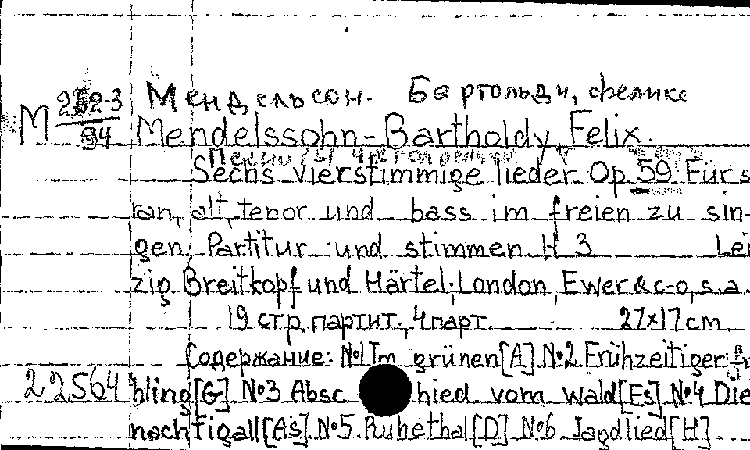 М 252-3/94 Мендельсон-Бартольди, феликс
Mendelssohn-Bartholdy, Felix.
Sechs vierstimmige lieder. Op. 59. Für s
ran, alt, tenor und bass im freien zu sin-
gen. Partitur und stimmen H 3 Lei
zig Breitkopf und Härtel, London, Ewer&c-o, s.a.
19 стр. партит., 4 парт. 27x17 cm
Содержание: №1 Im grünen[A] №2 Frühzeitiger
22564 hling[G] №3 Absc hied vom wald[Es] №4 Die
nachtigall[As]. №5. Ruhethal[D] №6 Jagdlied[H]